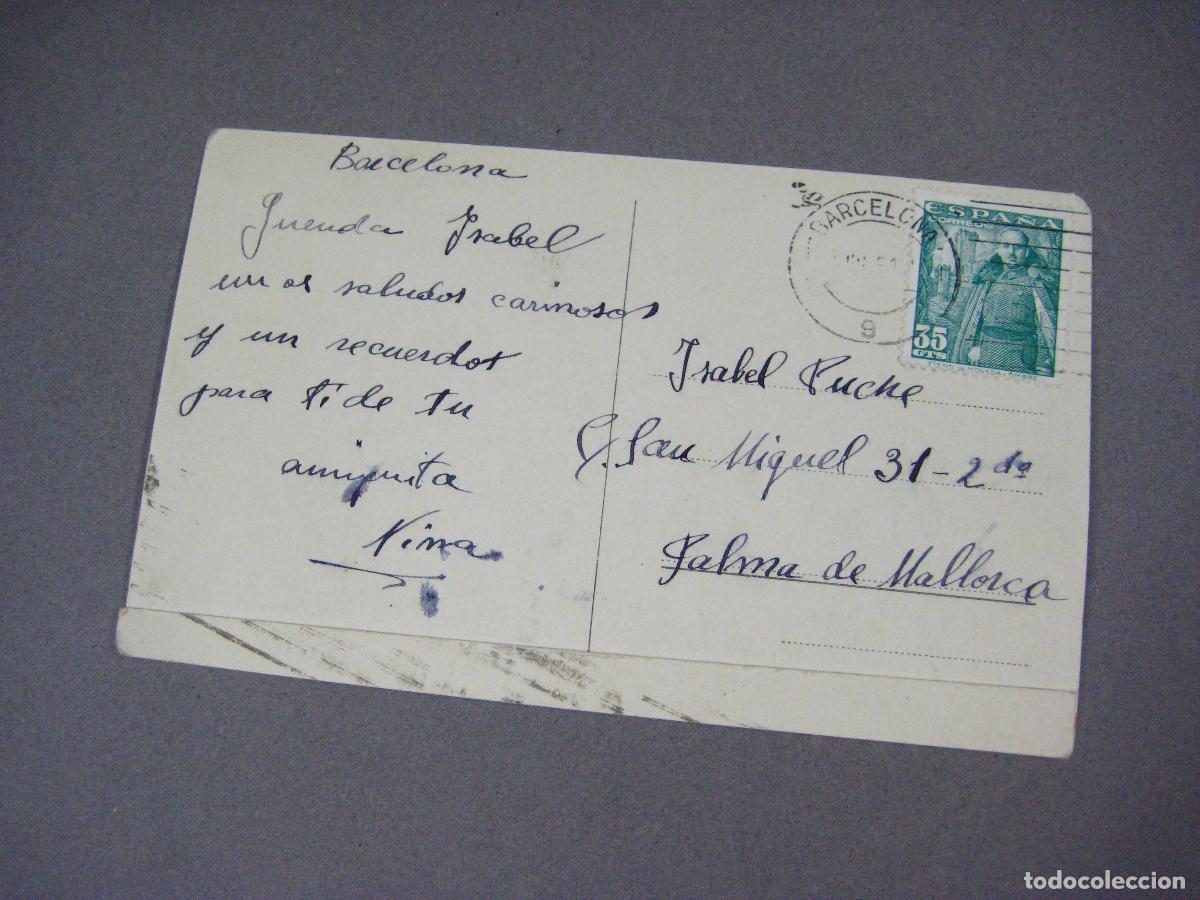 Barcelona
Querida Isabel
un os saludos cariñosos
y un recuerdos
para ti de tu
amiguita
Nina
BARCELONA
9
ESPAÑA
CORREOS
35
CTS
Isabel Puche
C. San Miguel 31-2da
Palma de Mallorca
todocoleccion